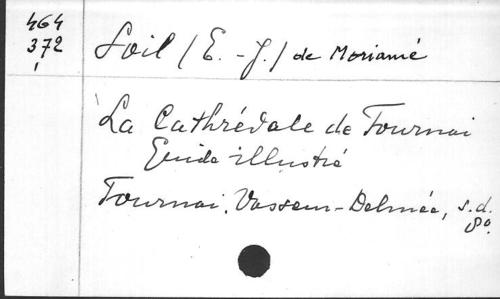 464
372
Soil (E.-J.) de Moriamé
La Cathrédale de Tournai
Guide illustré
Tournai. Vasseur-Delmée, s.d.
8º.